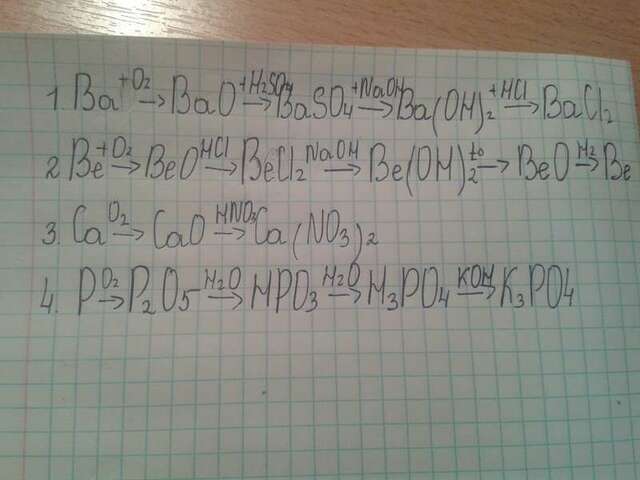 1. Ba +O2→ BaO +H2SO4→ BaSO4 +NaOH→ Ba(OH)2 +HCl→ BaCl2
2 Be +O2→ BeO HCl→ BeCl2 NaOH→ Be(OH)2 to→ BeO H2→ Be
3. Ca O2→ CaO HNO3→ Ca(NO3)2
4. P O2→ P2O5 H2O→ HPO3 H2O→ H3PO4 KOH→ K3PO4